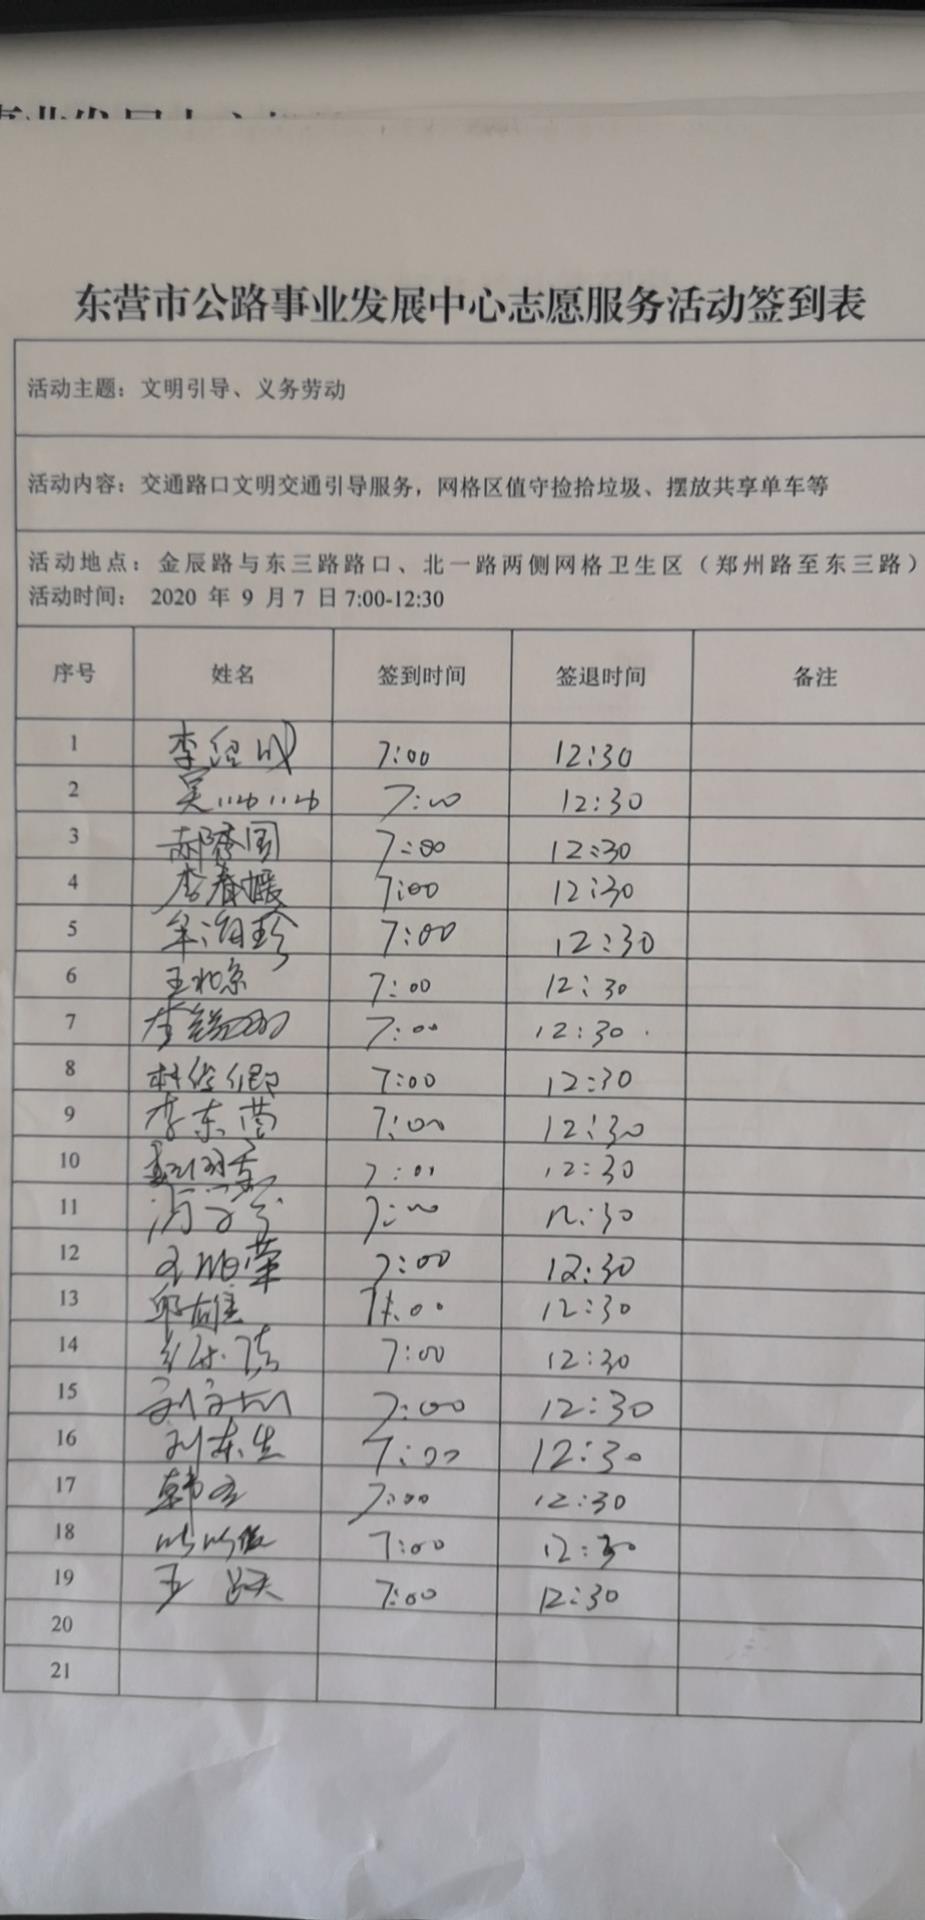 东营市公路事业发展中心志愿服务活动签到表
活动主题：文明引导、义务劳动
活动内容：交通路口文明交通引导服务，网格区值守捡拾垃圾、摆放共享单车等
活动地点：金辰路与东三路路口、北一路两侧网格卫生区（郑州路至东三路）
活动时间： 2020 年 9 月 7 日 7:00-12:30
序号 姓名 签到时间 签退时间 备注
1 李绍成 7:00 12:30
2 吴 7:00 12:30
3 郝秀国 7:00 12:30
4 李春媛 7:00 12:30
5 牟海珍 7:00 12:30
6 王北京 7:00 12:30
7 李 7:00 12:30
8 林 7:00 12:30
9 李东营 7:00 12:30
10 7:00 12:30
11 7:00 12:30
12 荣 7:00 12:30
13 邱雄 7:00 12:30
14 7:00 12:30
15 刘 7:00 12:30
16 刘东生 7:00 12:30
17 韩 7:00 12:30
18 7:00 12:30
19 王 跃 7:00 12:30
20
21